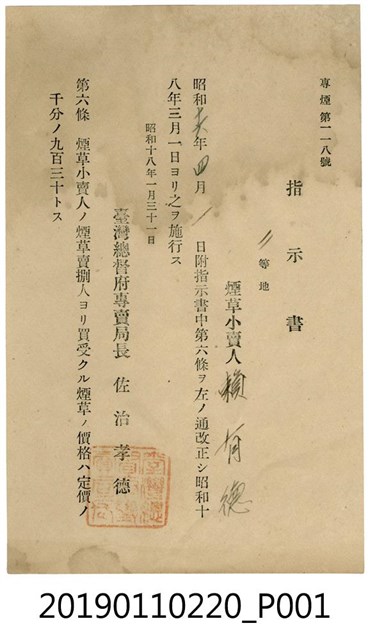 專煙第一一八號
指示書
〃等地
煙草小賣人 賴有德
昭和 年四月 日附指示書中第六條ヲ左ノ通改正シ昭和十
八年三月一日ヨリ之ヲ施行ス
昭和十八年一月三十一日
臺灣總督府專賣局長 佐治孝德
第六條 煙草小賣人ノ煙草賣捌人ヨリ買受クル煙草ノ價格ハ定價ノ
千分ノ九百三十トス
20190110220_P001